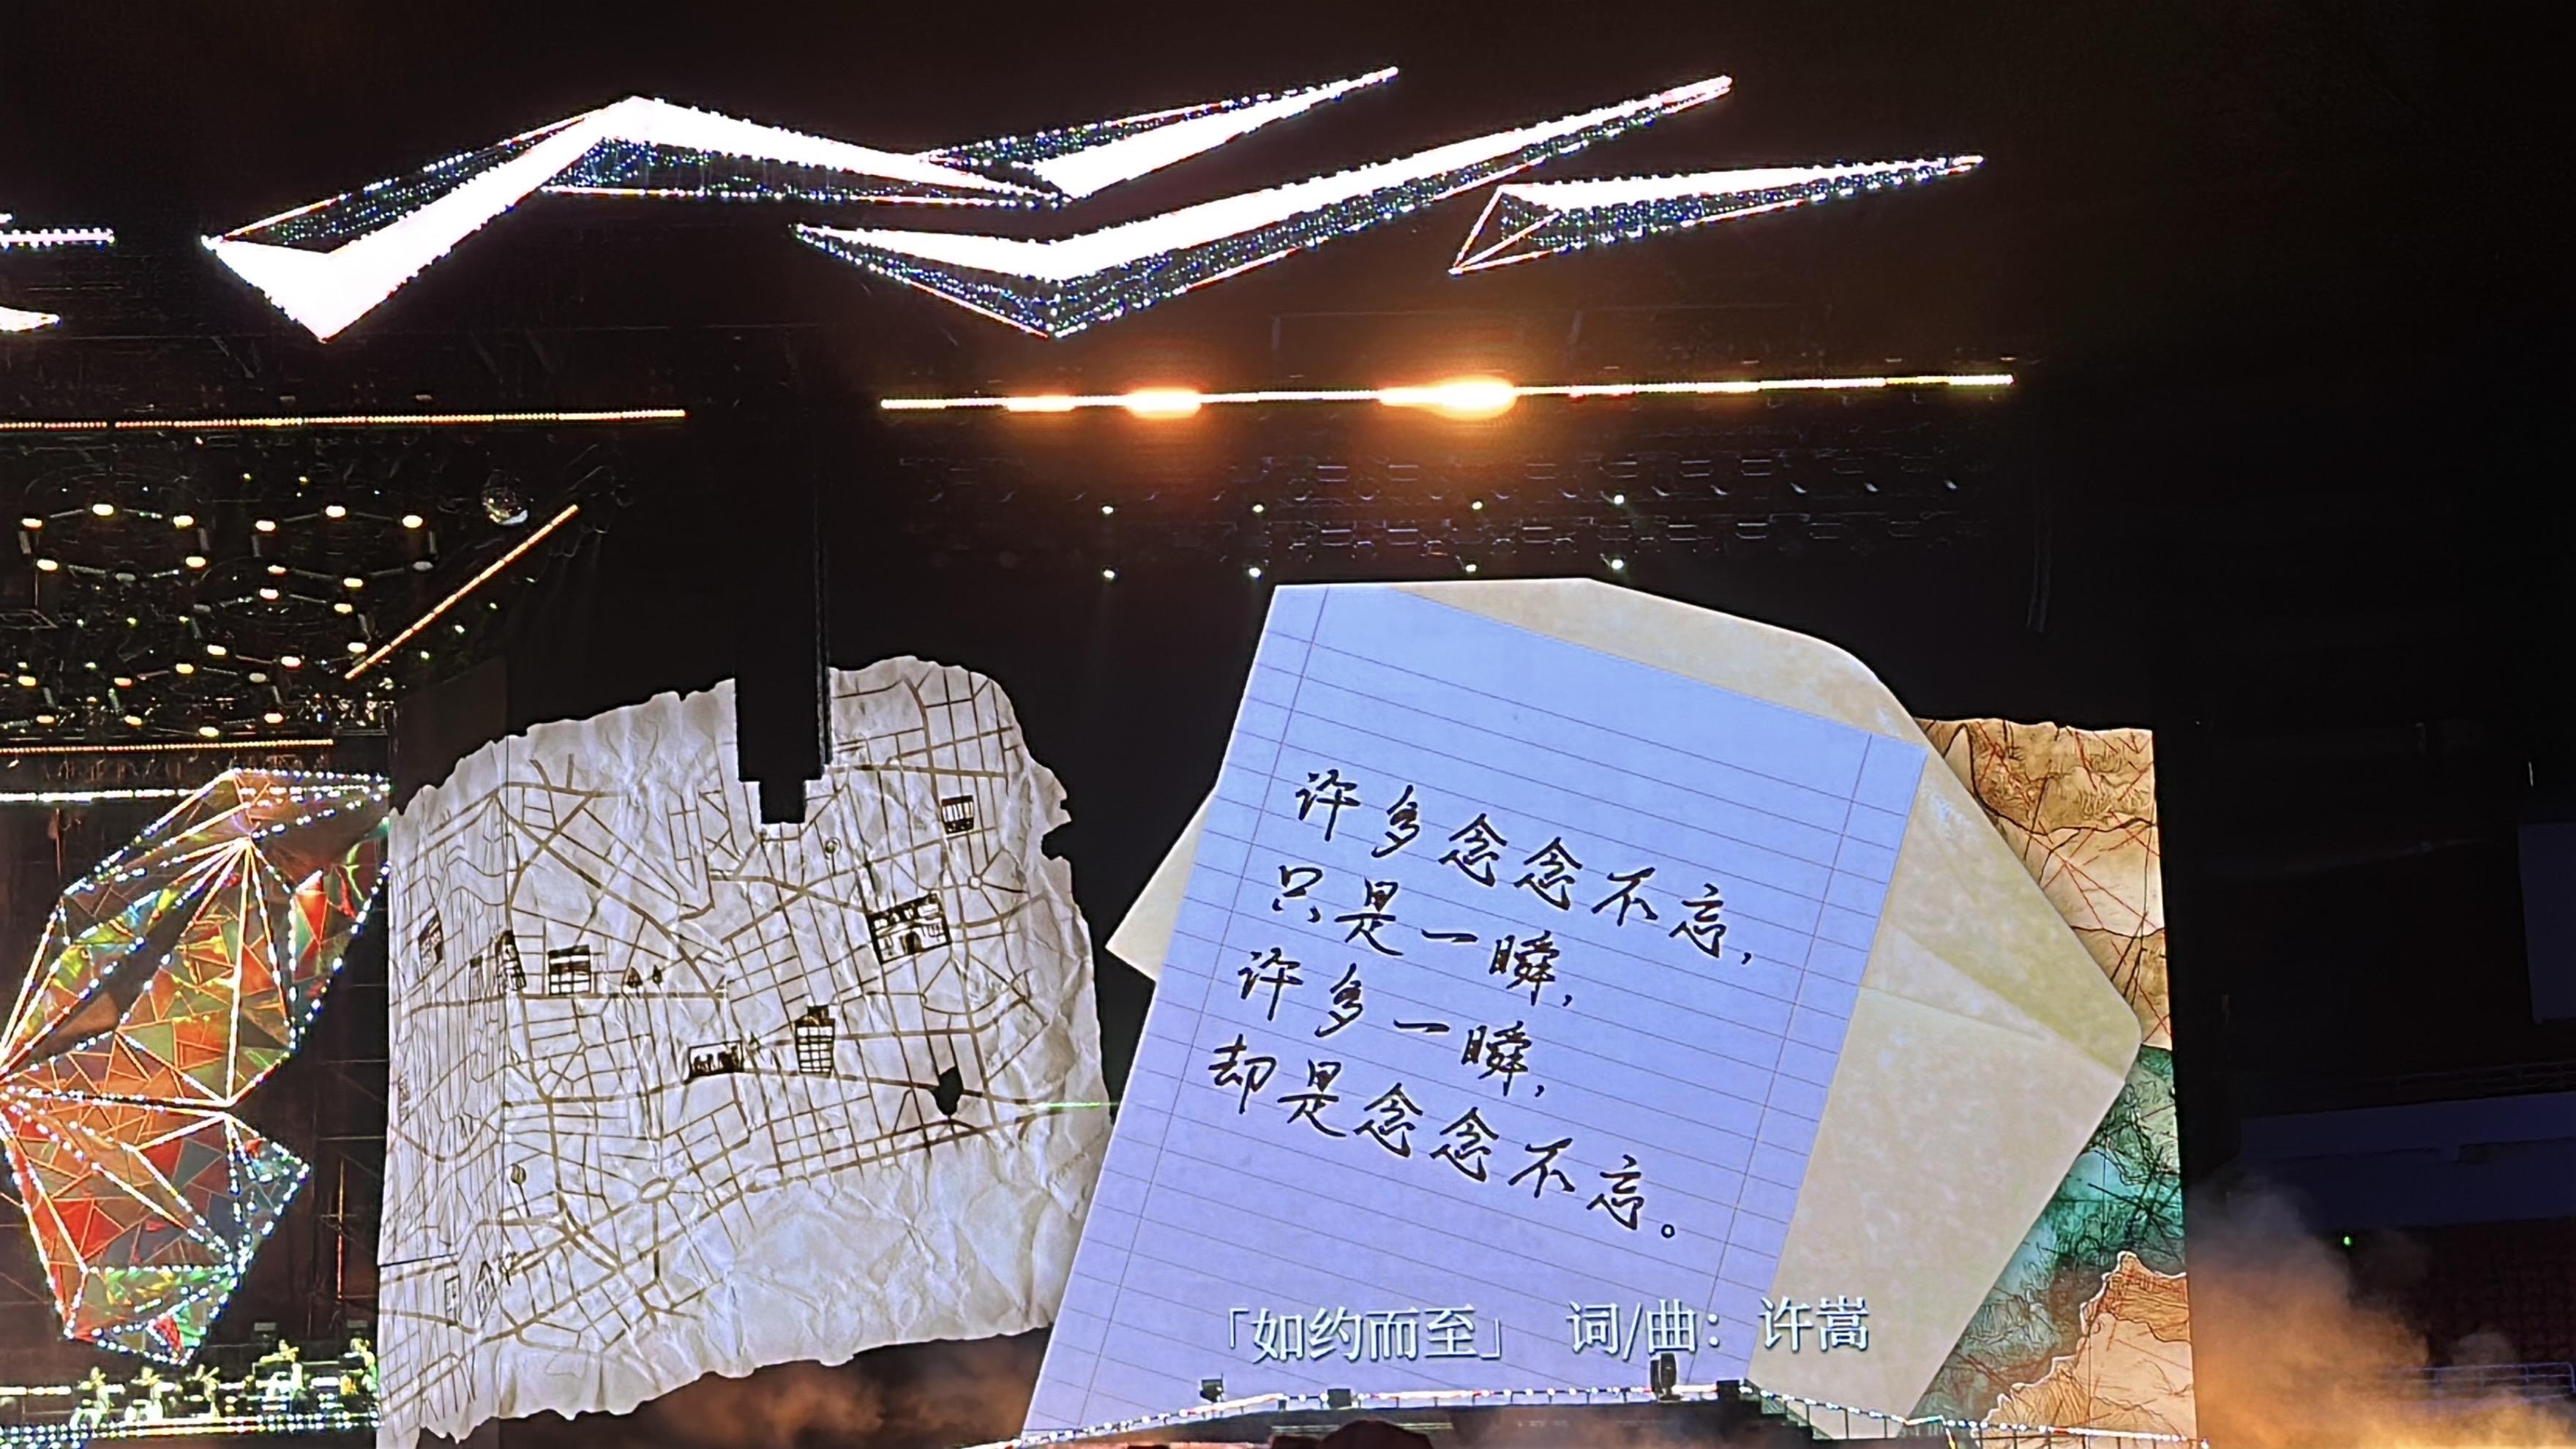 许多念念不忘，
只是一瞬，
许多一瞬，
却是念念不忘。
「如约而至」 词/曲：许嵩